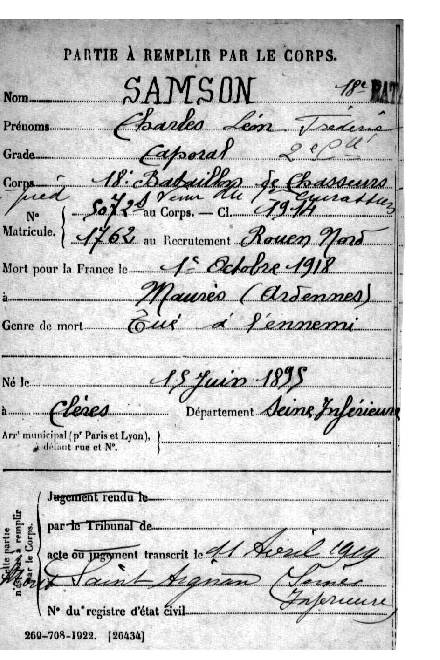 PARTIE À REMPLIR PAR LE CORPS.
18e BAT
Nom SAMSON
Prénoms Charles Léon Frédéric
Grade Caporal 2e Cie
Corps 18e Bataillon de Chasseurs
à pied venu du Cuirassiers
N° 5072 au Corps. — Cl. 1914
Matricule. 1762 au Recrutement Rouen Nord
Mort pour la France le 1er Octobre 1918
à (Ardennes)
Genre de mort Tué à l'ennemi
Né le 15 Juin 1895
à Clères Département Seine Inférieure
Arrt municipal (pr Paris et Lyon),
à défaut rue et N°.
Jugement rendu le
par le Tribunal de
acte ou jugement transcrit le 11 Avril 1919
Saint Aignan (Seine
Inférieure)
N° du registre d'état civil
Cette partie
n'est pas à remplir
par le Corps.
269-708-1922. [26434]